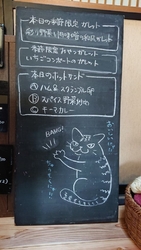 本日の季節限定 ガレット
彩り野菜と
ガレット
季節限定 おやつガレット
いちごコンポートのガレット
本日のホットサンド
Ⓐ ハム&スクランブルエッグ
Ⓑ スパイス野菜炒め
Ⓒ キーマカレー
BANG!